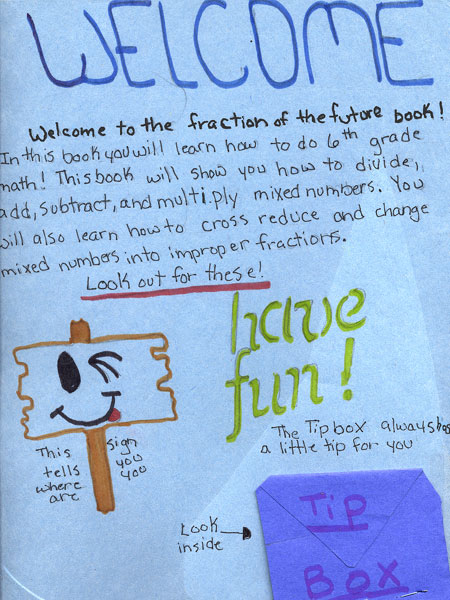 WELCOME
Welcome to the fraction of the future book!
In this book you will learn how to do 6th grade
math! This book will show you how to divide,
add, subtract, and multiply mixed numbers. You
will also learn how to cross reduce and change
mixed numbers into improper fractions.
Look out for these!
have
fun!
This sign
tells you
where you
are
The Tip box always has
a little tip for you
Look
inside
Tip
Box